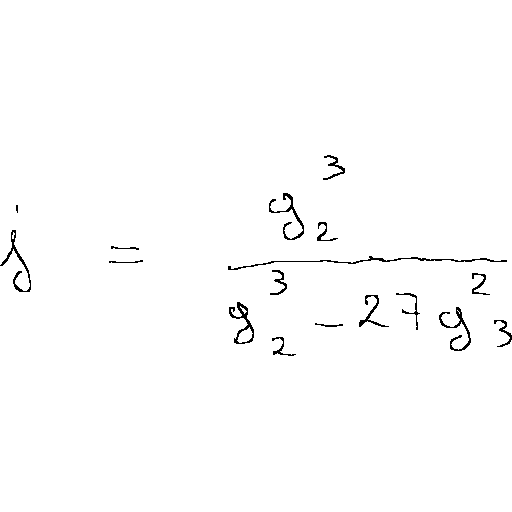 j = \frac{g_2^3}{g_2^3 - 27 g_3^2}